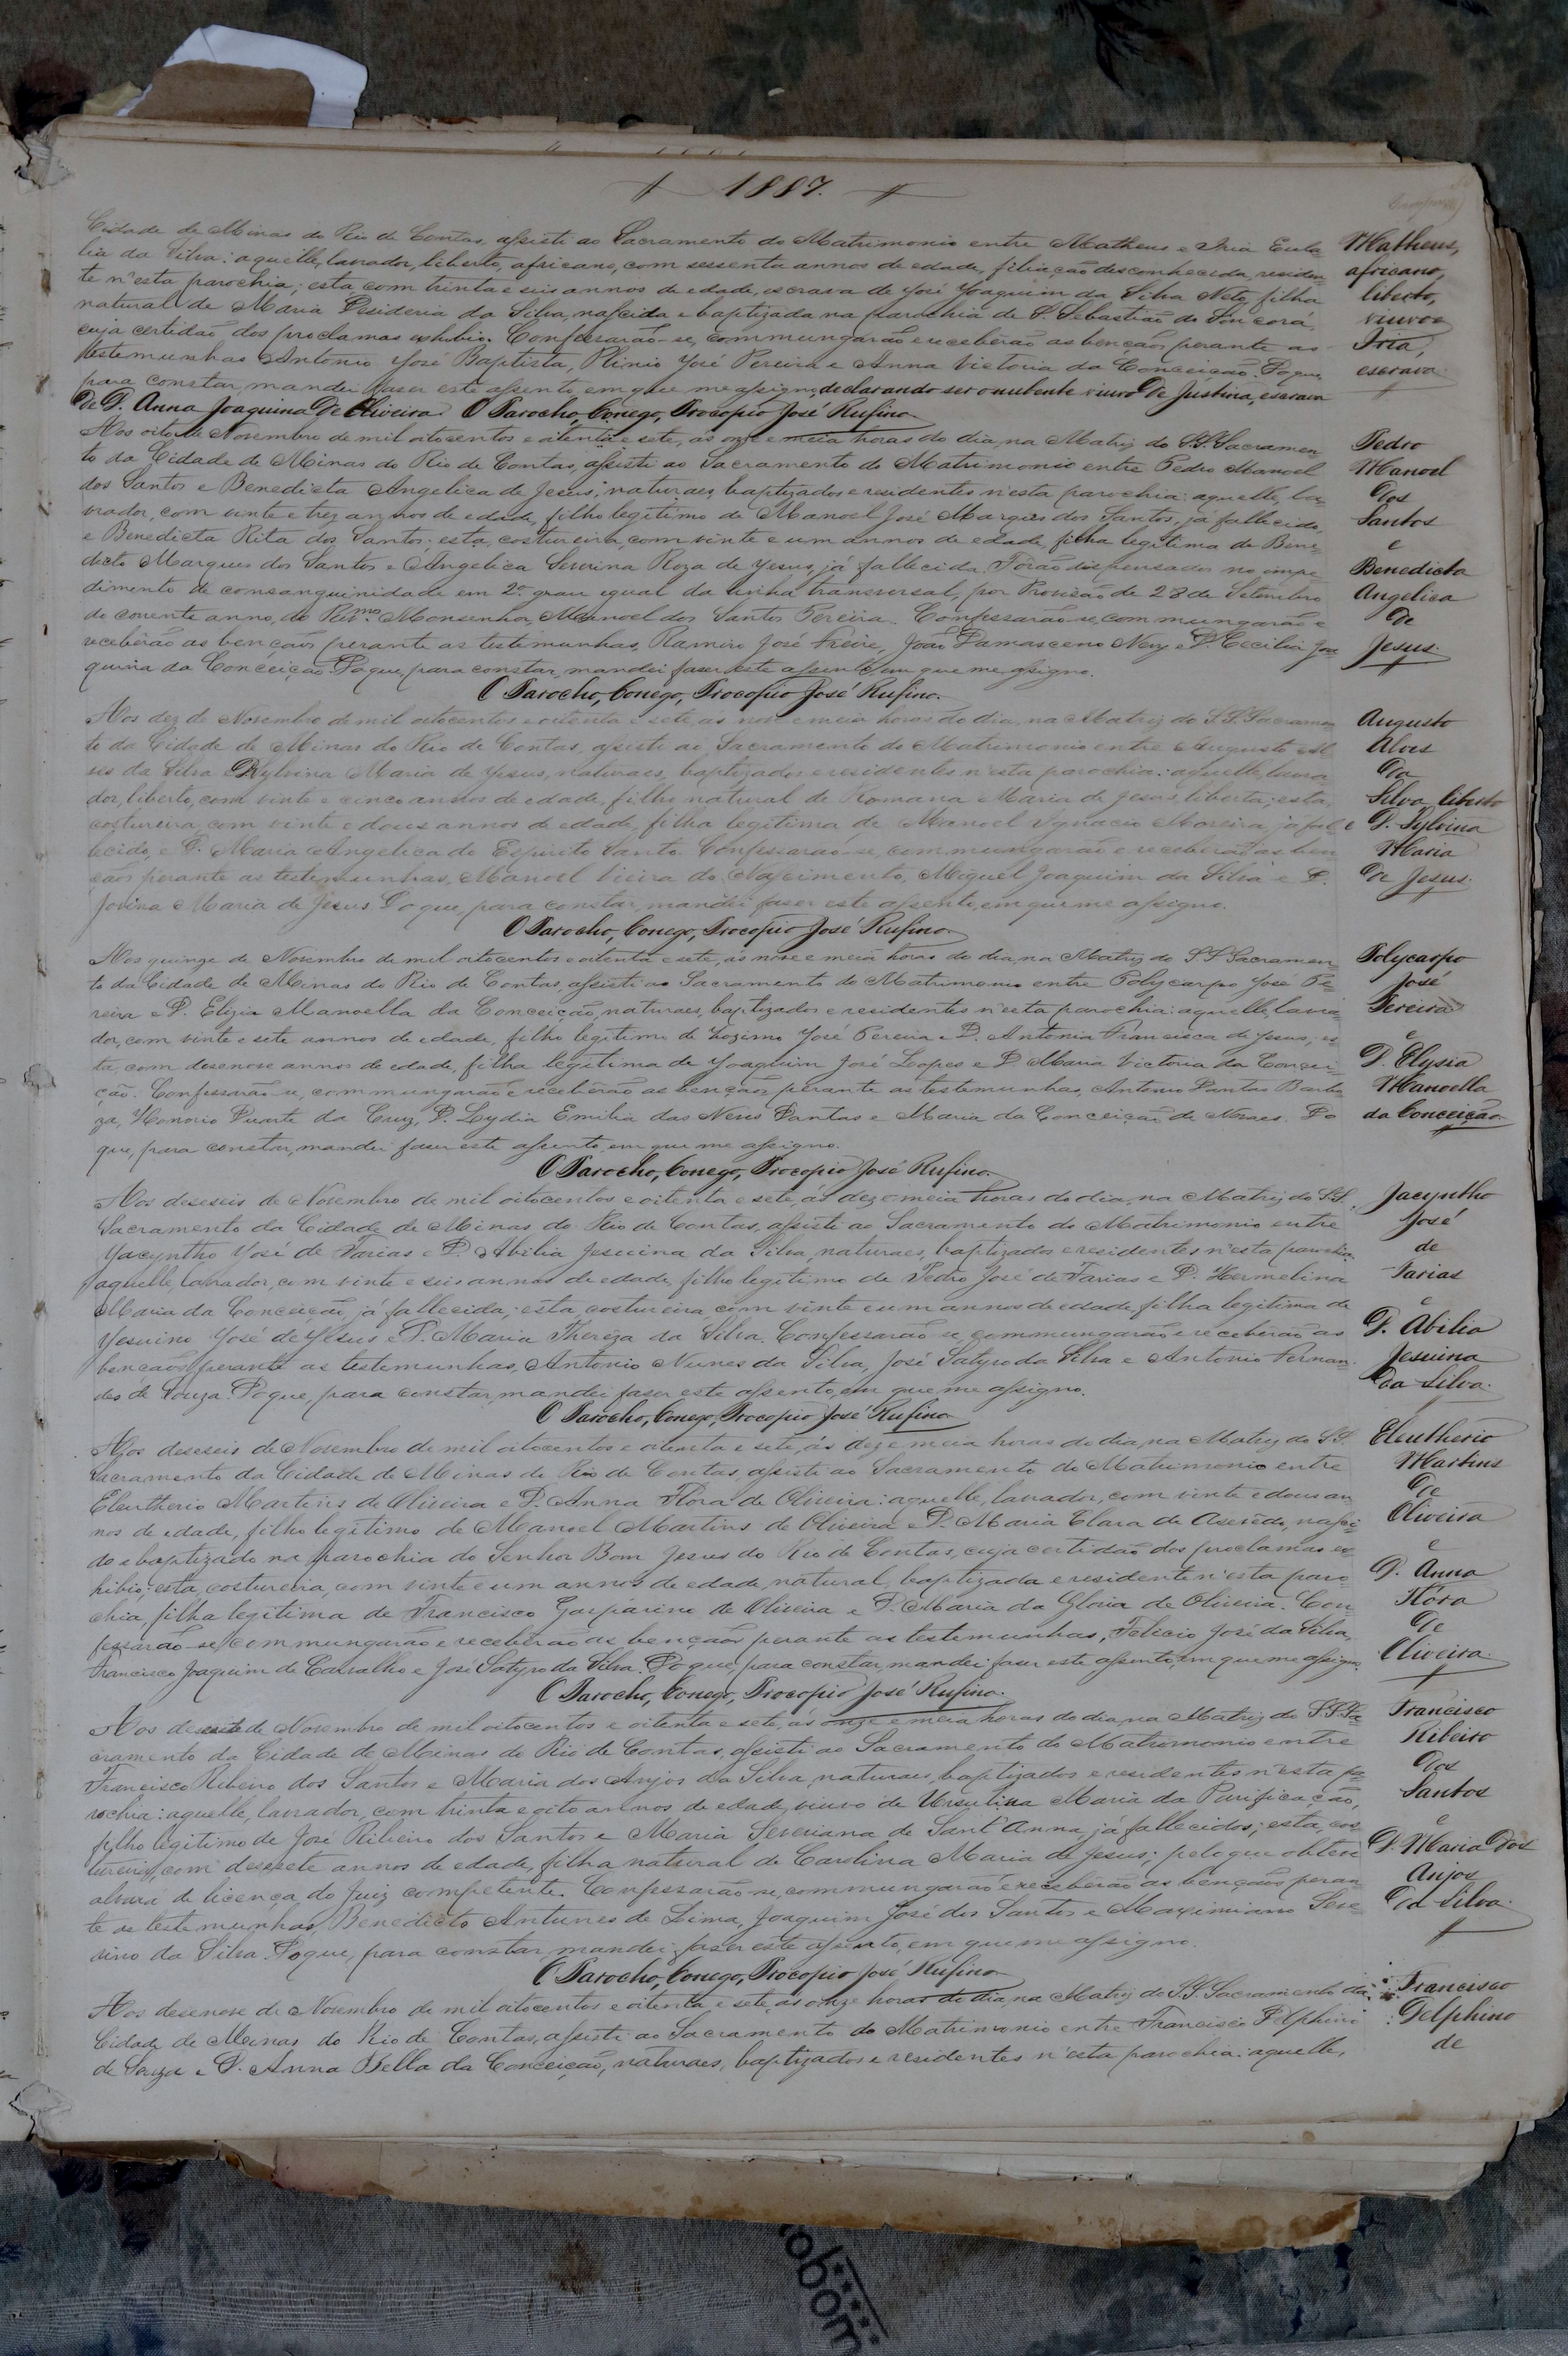 1887.
Cidade de Minas do Rio de Contas, assisti ao Sacramento do Matrimonio entre Matheus e Iria Eula-
lia da Silva: aquelle, lavrador, liberto, africano, com sessenta annos de edade, filiação desconhecida, residen-
te n'esta parochia; esta, com trinta e seis annos de edade, escrava de José Joaquim da Silva Neto, filha
natural de Maria Desideria da Silva, nascida e baptizada na parochia de S. Sebastião do Sincorá,
cuja certidão dos proclamas exhibio. Confessarão-se, commungarão e receberão as bençãos perante as
testemunhas Antonio José Baptista, Plinio José Pereira e Anna Victoria da Conceição. Do que,
para constar, mandei faser este assento, em que me assigno, declarando ser o nubente viuvo de Justina, escrava
de D. Anna Joaquina de Oliveira. O Parocho, Conego, Procopio José Rufino
Matheus,
africano,
liberto,
viuvo e
Iria,
escrava.
Aos oito de Novembro de mil oitocentos e oitenta e sete, ás onze e meia horas do dia, na Matriz do S.S. Sacramen-
to da Cidade de Minas do Rio de Contas, assisti ao Sacramento do Matrimonio entre Pedro Manoel
dos Santos e Benedicta Angelica de Jesus, naturaes, baptizados e residentes n'esta parochia: aquelle, la-
vrador, com vinte e trez annos de edade, filho legitimo de Manoel José Marques dos Santos, já fallecido,
e Benedicta Rita dos Santos; esta, costureira, com vinte e um annos de edade, filha legitima de Bene-
dicto Marques dos Santos e Angelica Severina Roza de Jesus, já fallecida. Forão dispensados no impe-
dimento de consanguinidade em 2º grau egual da linha transversal, por Provisão de 28 de Setembro
do corrente anno, do Revmo Monsenhor, Manoel dos Santos Pereira. Confessarão-se, commungarão e
receberão as bençãos perante as testemunhas, Ramiro José Freire, João Damasceno Nery e D. Cecilia Joa-
quina da Conceição. Do que, para constar, mandei faser este assento, em que me assigno.
O Parocho, Conego, Procopio José Rufino.
Pedro
Manoel
dos
Santos
e
Benedicta
Angelica
de
Jesus.
Aos dez de Novembro de mil oitocentos e oitenta e sete, as nove e meia horas do dia, na Matriz do S.S. Sacramen-
to da Cidade de Minas do Rio de Contas, assisti ao Sacramento do Matrimonio entre Augusto Al-
ves da Silva e D. Sylvina Maria de Jesus, naturaes, baptizados e residentes n'esta parochia: aquelle, lavra-
dor, liberto, com vinte e cinco annos de edade, filho natural de Romana Maria de Jesus, liberta; esta,
costureira, com vinte e dous annos de edade, filha legitima de Manoel Ignacio Moreira, já fal-
lecido, e D. Maria Angelica do Espirito Santo. Confessarão-se, commungarão e receberão as ben-
çãos perante as testemunhas, Manoel Vieira do Nascimento, Miguel Joaquim da Silva e D.
Jovina Maria de Jesus. Do que, para constar, mandei faser este assento, em que me assigno.
O Parocho, Conego, Procopio José Rufino
Augusto
Alves
da
Silva liberto
e D. Sylvina
Maria
de Jesus.
Aos quinze de Novembro de mil oitocentos e oitenta e sete, ás nove e meia horas do dia, na Matriz do S.S. Sacramen-
to da Cidade de Minas do Rio de Contas, assisti ao Sacramento do Matrimonio entre Polycarpo José Pe-
reira e D. Elizia Manoella da Conceição, naturaes, baptizados e residentes n'esta parochia: aquelle, lavra-
dor, com vinte e sete annos de edade, filho legitimo de Zozimo José Pereira e D. Antonia Francisca de Jesus; es-
ta, com desenove annos de edade, filha legitima de Joaquim José Lopes e D. Maria Victoria da Concei-
ção. Confessarão-se, commungarão e receberão as bençãos perante as testemunhas, Antonio Dantas Barbo-
za, Honorio Duarte da Cruz, D. Lydia Emilia das Neves Dantas e Maria da Conceição de Novaes. Do
que, para constar, mandei faser este assento, em que me assigno.
O Parocho, Conego, Procopio José Rufino
Polycarpo
José
Pereira
e
D. Elysia
Manoella
da Conceição
Aos deseseis de Novembro de mil oitocentos e oitenta e sete, ás dez e meia horas do dia, na Matriz do S.S.
Sacramento da Cidade de Minas do Rio de Contas, assisti ao Sacramento do Matrimonio entre
Jacyntho José de Farias e D. Abilia Jesuina da Silva, naturaes, baptizados e residentes n'esta parochia:
aquelle, lavrador, com vinte e seis annos de edade, filho legitimo de Pedro José de Farias e D. Hermelina
Maria da Conceição, já fallecida; esta, costureira, com vinte e um annos de edade, filha legitima de
Jesuino José de Jesus e D. Maria Thereza da Silva. Confessarão-se, commungarão e receberão as
bençãos perante as testemunhas, Antonio Nunes da Silva, José Satyro da Silva e Antonio Fernan-
des de Souza. Do que, para constar, mandei faser este assento, em que me assigno.
O Parocho, Conego, Procopio José Rufino
Jacyntho
José
de
Farias
e
D. Abilia
Jesuina
da Silva.
Aos deseseis de Novembro de mil oitocentos e oitenta e sete, ás dez e meia horas do dia, na Matriz do S.S.
Sacramento da Cidade de Minas do Rio de Contas, assisti ao Sacramento do Matrimonio entre
Eleutherio Martins de Oliveira e D. Anna Flora de Oliveira: aquelle, lavrador, com vinte e dous an-
nos de edade, filho legitimo de Manoel Martins de Oliveira e D. Maria Clara de Asevedo, nasci-
do e baptizado na parochia do Senhor Bom Jesus do Rio de Contas, cuja certidão dos proclamas ex-
hibio; esta, costureira, com vinte e um annos de edade, natural, baptizada e residente n'esta paro-
chia, filha legitima de Francisco Gasparino de Oliveira e D. Maria da Gloria de Oliveira. Con-
fessarão-se, commungarão e receberão as bençãos perante as testemunhas, Felicio José da Silva,
Francisco Joaquim de Carvalho e José Satyro da Silva. Do que, para constar, mandei faser este assento, em que me assigno.
O Parocho, Conego, Procopio José Rufino.
Eleutherio
Martins
de
Oliveira
e
D. Anna
Flóra
de
Oliveira.
Aos desesete de Novembro de mil oitocentos e oitenta e sete, ás onze e meia horas do dia, na Matriz do S.S. Sa-
cramento da Cidade de Minas do Rio de Contas, assisti ao Sacramento do Matrimonio entre
Francisco Ribeiro dos Santos e Maria dos Anjos da Silva, naturaes, baptizados e residentes n'esta pa-
rochia: aquelle, lavrador, com trinta e oito annos de edade, viuvo de Ursulina Maria da Purificação,
filho legitimo de José Ribeiro dos Santos e Maria Severiana de Sant'Anna, já fallecidos; esta, cos-
tureira, com desesete annos de edade, filha natural de Carolina Maria de Jesus; pelo que obteve
alvará de licença do Juiz competente. Confessarão-se, commungarão e receberão as bençãos peran-
te as testemunhas, Benedicto Antunes de Lima, Joaquim José dos Santos e Maximiano Seve-
rino da Silva. Do que, para constar, mandei faser este assento, em que me assigno.
O Parocho, Conego, Procopio José Rufino
Francisco
Ribeiro
dos
Santos
e
D. Maria dos
Anjos
da Silva.
Aos desenove de Novembro de mil oitocentos e oitenta e sete, ás onze horas do dia, na Matriz do S.S. Sacramento da
Cidade de Minas do Rio de Contas, assisti ao Sacramento do Matrimonio entre Francisco Delphino
de Souza e D. Anna Bella da Conceição, naturaes, baptizados e residentes n'esta parochia: aquelle,
Francisco
Delphino
de